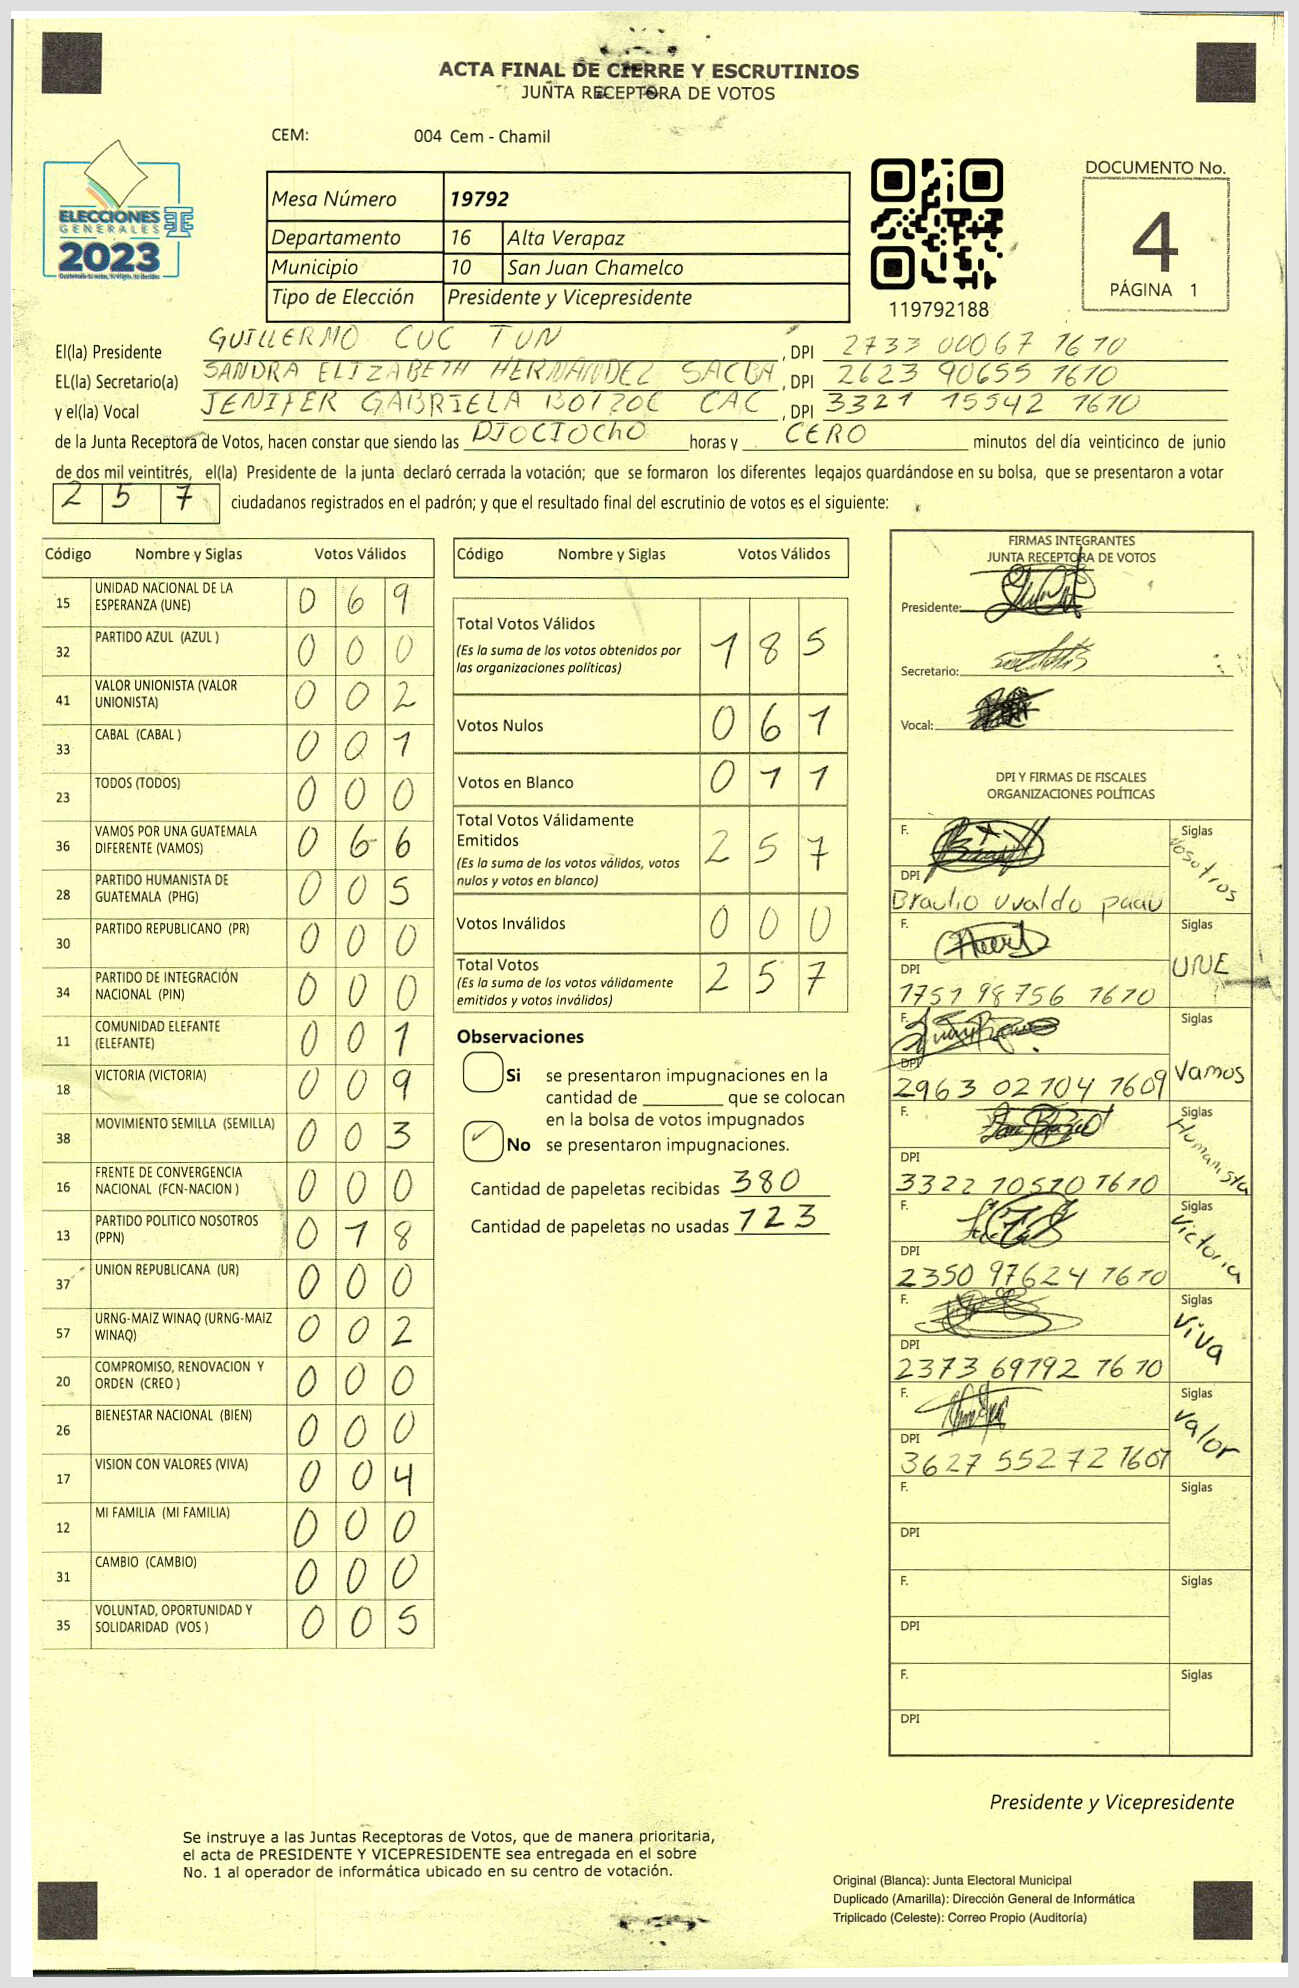 ACTA FINAL DE CIERRE Y ESCRUTINIOS
JUNTA RECEPTORA DE VOTOS
CEM: 004 Cem - Chamil
ELECCIONES
GENERALES
2023
Mesa Número 19792
Departamento 16 Alta Verapaz
Municipio 10 San Juan Chamelco
Tipo de Elección Presidente y Vicepresidente
119792188
DOCUMENTO No.
4
PÁGINA 1
El(la) Presidente GUILLERMO CUC TUN , DPI 2733 00067 1610
EL(la) Secretario(a) SANDRA ELIZABETH HERNANDEZ SACBA , DPI 2623 90655 1610
y el(la) Vocal JENIFER GABRIELA BOTZOC CAC , DPI 3321 15542 1610
de la Junta Receptora de Votos, hacen constar que siendo las DIOCIOCHO horas y CERO minutos del día veinticinco de junio
de dos mil veintitrés, el(la) Presidente de la junta declaró cerrada la votación; que se formaron los diferentes legajos quardándose en su bolsa, que se presentaron a votar
2 5 7 ciudadanos registrados en el padrón; y que el resultado final del escrutinio de votos es el siguiente:
Código Nombre y Siglas Votos Válidos
15 UNIDAD NACIONAL DE LA ESPERANZA (UNE) 0 6 9
32 PARTIDO AZUL (AZUL ) 0 0 0
41 VALOR UNIONISTA (VALOR UNIONISTA) 0 0 2
33 CABAL (CABAL ) 0 0 1
23 TODOS (TODOS) 0 0 0
36 VAMOS POR UNA GUATEMALA DIFERENTE (VAMOS) 0 6 6
28 PARTIDO HUMANISTA DE GUATEMALA (PHG) 0 0 5
30 PARTIDO REPUBLICANO (PR) 0 0 0
34 PARTIDO DE INTEGRACIÓN NACIONAL (PIN) 0 0 0
11 COMUNIDAD ELEFANTE (ELEFANTE) 0 0 1
18 VICTORIA (VICTORIA) 0 0 9
38 MOVIMIENTO SEMILLA (SEMILLA) 0 0 3
16 FRENTE DE CONVERGENCIA NACIONAL (FCN-NACION ) 0 0 0
13 PARTIDO POLITICO NOSOTROS (PPN) 0 1 8
37 UNION REPUBLICANA (UR) 0 0 0
57 URNG-MAIZ WINAQ (URNG-MAIZ WINAQ) 0 0 2
20 COMPROMISO, RENOVACION Y ORDEN (CREO ) 0 0 0
26 BIENESTAR NACIONAL (BIEN) 0 0 0
17 VISION CON VALORES (VIVA) 0 0 4
12 MI FAMILIA (MI FAMILIA) 0 0 0
31 CAMBIO (CAMBIO) 0 0 0
35 VOLUNTAD, OPORTUNIDAD Y SOLIDARIDAD (VOS ) 0 0 5
Código Nombre y Siglas Votos Válidos
Total Votos Válidos 1 8 5
(Es la suma de los votos obtenidos por
las organizaciones políticas)
Votos Nulos 0 6 1
Votos en Blanco 0 1 1
Total Votos Válidamente
Emitidos 2 5 7
(Es la suma de los votos válidos, votos
nulos y votos en blanco)
Votos Inválidos 0 0 0
Total Votos 2 5 7
(Es la suma de los votos válidamente
emitidos y votos inválidos)
Observaciones
Si se presentaron impugnaciones en la
cantidad de ________ que se colocan
en la bolsa de votos impugnados
No se presentaron impugnaciones.
Cantidad de papeletas recibidas 380
Cantidad de papeletas no usadas 123
FIRMAS INTEGRANTES
JUNTA RECEPTORA DE VOTOS
Presidente:
Secretario:
Vocal:
DPI Y FIRMAS DE FISCALES
ORGANIZACIONES POLÍTICAS
F. Siglas Nosotros
DPI
Braulio Uvaldo paau
F. Siglas UNE
DPI
1751 98756 1610
F. Siglas Vamos
DPI
2963 02104 1609
F. Siglas Humanista
DPI
3322 10510 1610
F. Siglas Victoria
DPI
2350 97624 1610
F. Siglas Viva
DPI
2373 69192 1610
F. Siglas Valor
DPI
3627 55272 1607
F. Siglas
DPI
F. Siglas
DPI
F. Siglas
DPI
Presidente y Vicepresidente
Se instruye a las Juntas Receptoras de Votos, que de manera prioritaria,
el acta de PRESIDENTE Y VICEPRESIDENTE sea entregada en el sobre
No. 1 al operador de informática ubicado en su centro de votación.
Original (Blanca): Junta Electoral Municipal
Duplicado (Amarilla): Dirección General de Informática
Triplicado (Celeste): Correo Propio (Auditoría)